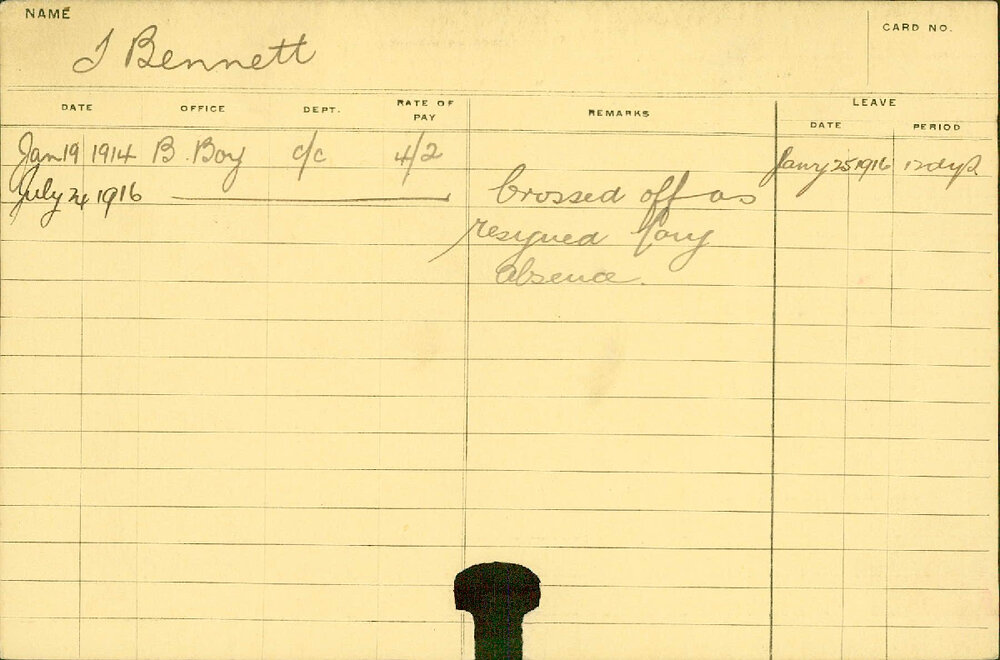 NAME
CARD NO.
J Bennett
DATE OFFICE DEPT. RATE OF PAY REMARKS LEAVE
DATE PERIOD
Jan 19 1914 B. Boy c/c 4/2 Jany 25 1916 12 dys
July 24 1916 Crossed off as
resigned long
absence.